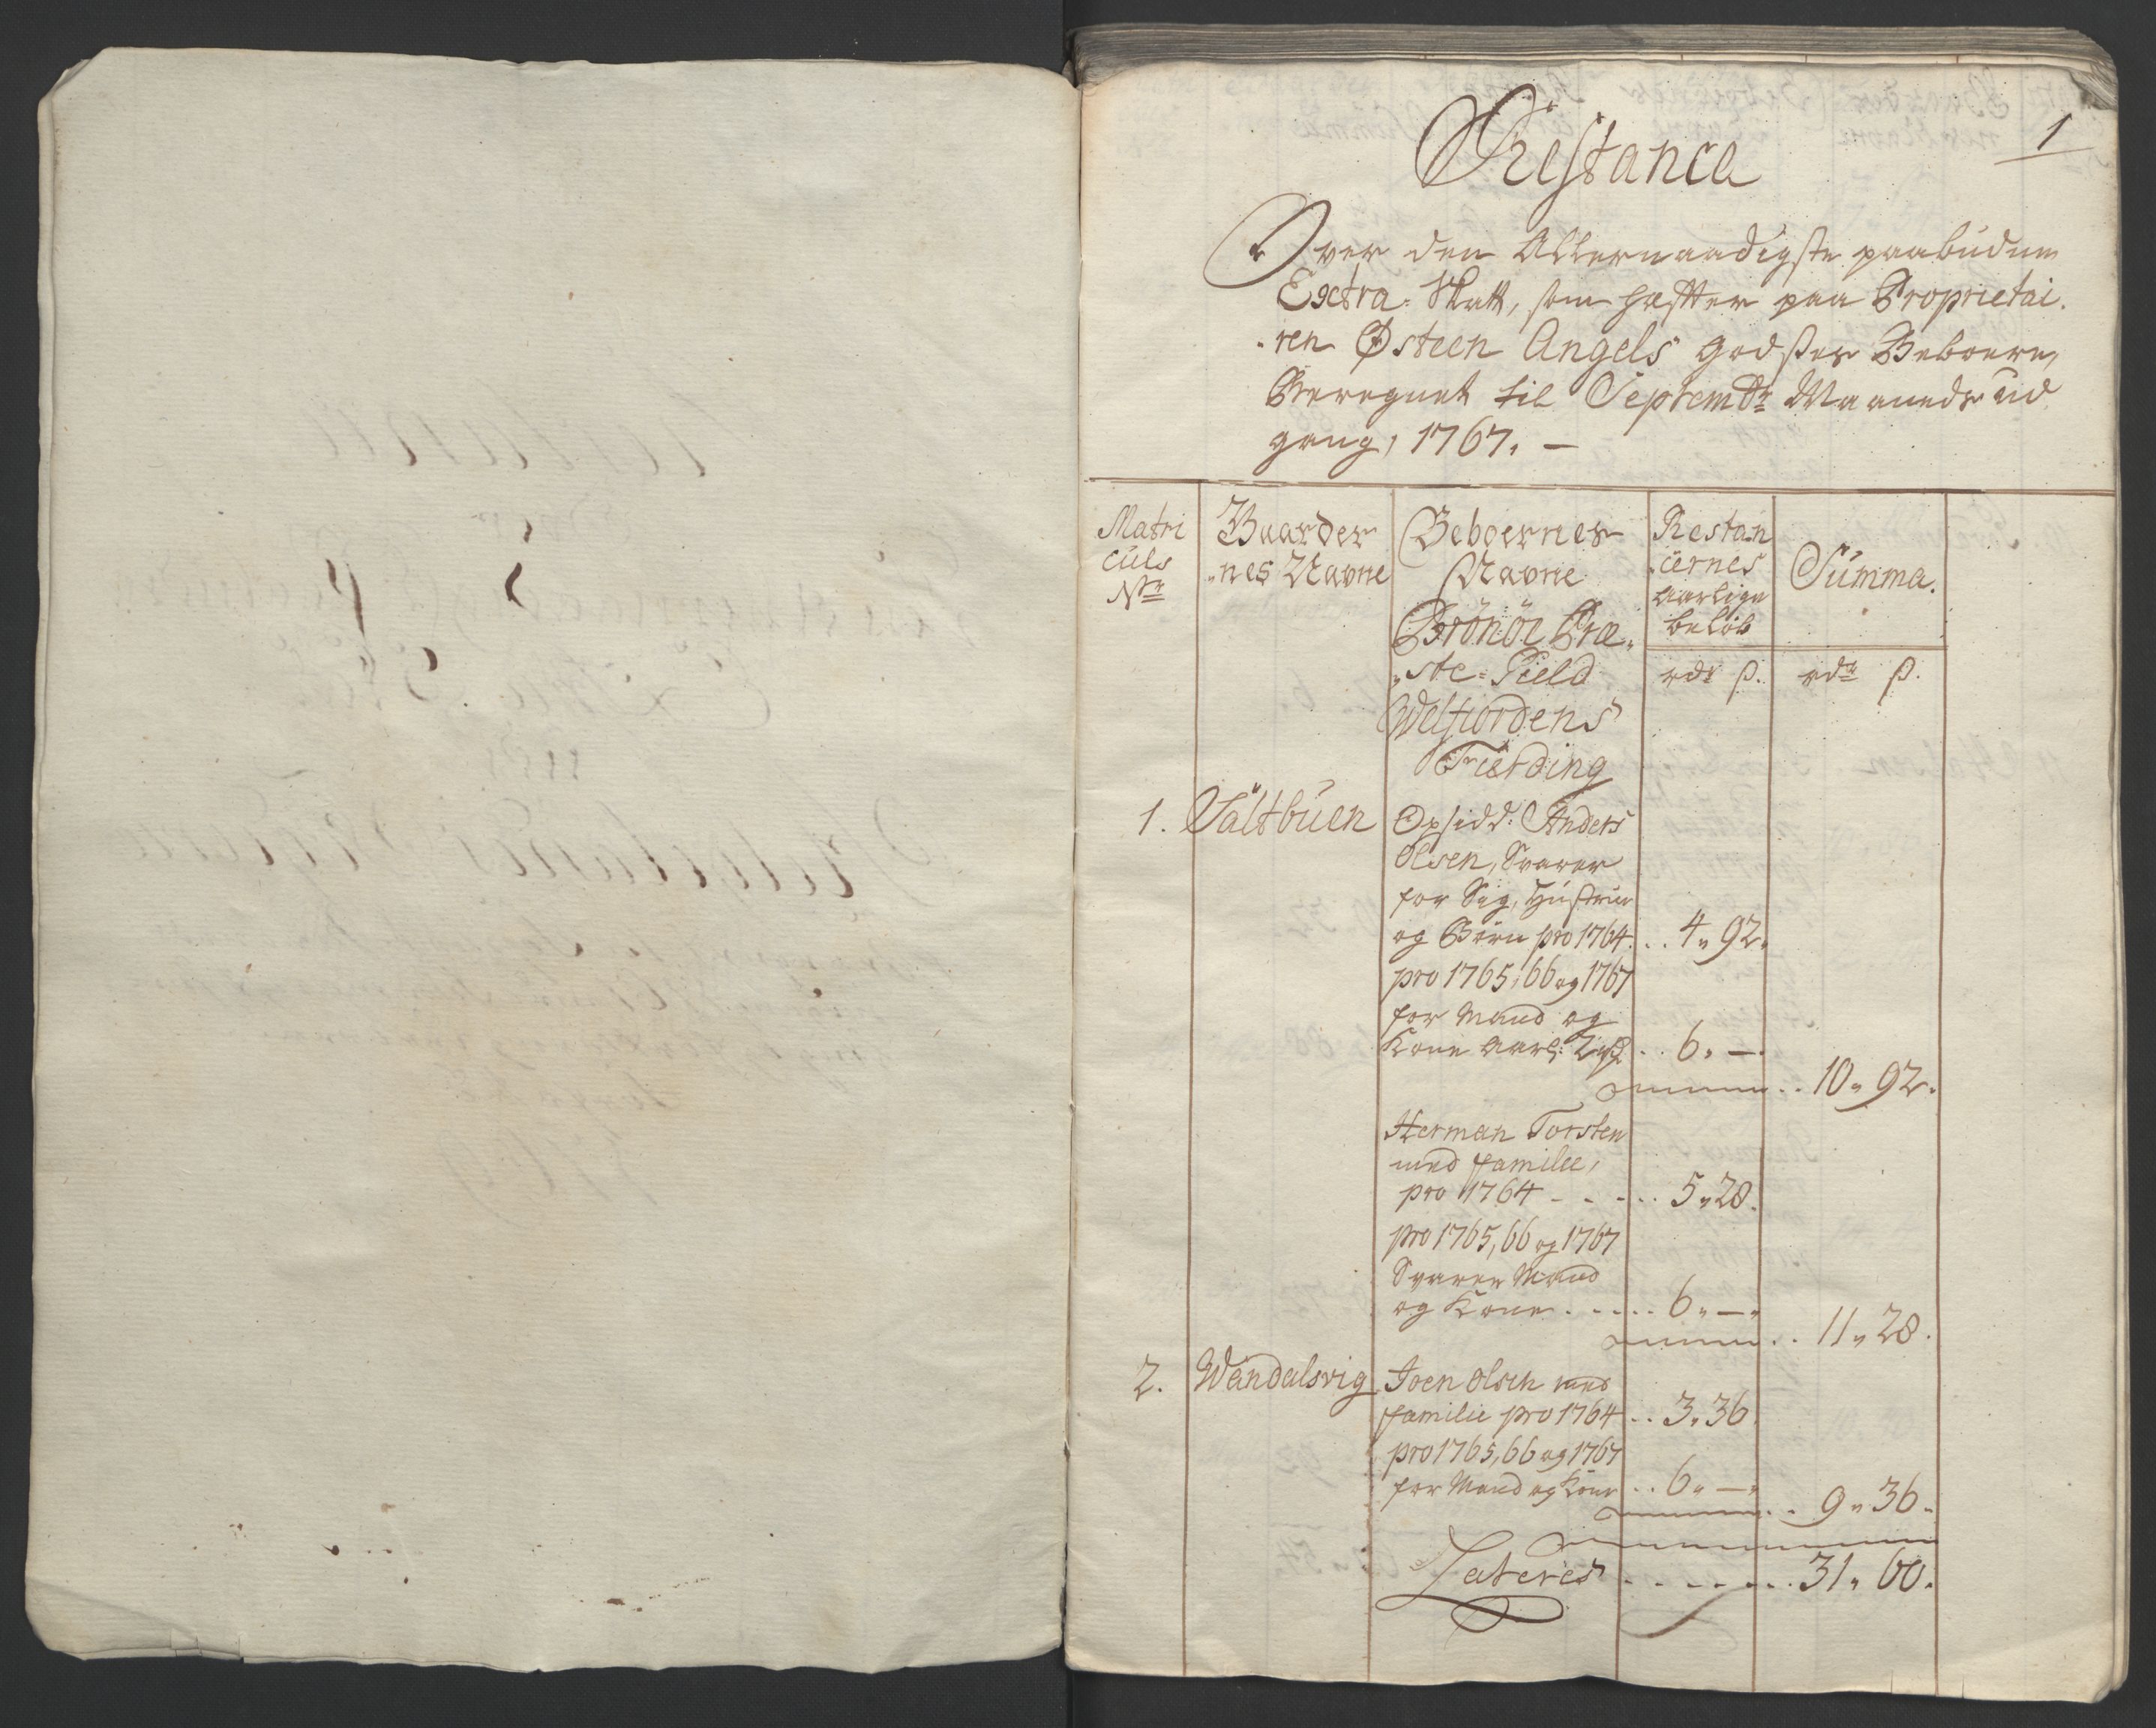 1
Restance
Over den Allernaadigste paabudne
Extra Skatt, som hæfter paa Proprietai,
"ren Østeen Angels godses Beboere,
Beregnet til Septembr Maaneds ud
gang, 1767. —
Matri
culs
Nr
Gaarder
"nes Navne
Beboernes
Navne
Restan
"cernes
aarlige
beløb
Summa.
Brönöe Præ,
"ste=Gield
rdr ß.
rdr ß.
Welfiordens
Fierding
1. Saltbuen Opsidd: Anders
Olsen, Svarer
for Sig, Hustrue
og Børn pro 1764. .. 4 " 92.
pro 1765, 66 og 1767
for Mand og
Kone aarl: 2 rdr .. 6. —
.. 10 " 92.
Herman Torsten
med familie,
pro 1764 - - - .. 5 " 28.
pro 1765, 66 og 1767
Svarer Mand
og Kone ..... 6 " — "
.. 11 " 28.
2. Wändalsvig Joen Olsen med
familie pro 1764 .. 3 " 36
pro 1765, 66 og 1767
for Mand og Kone .. 6 " — "
.. 9 " 36.
Lateris ....... 31 " 60.